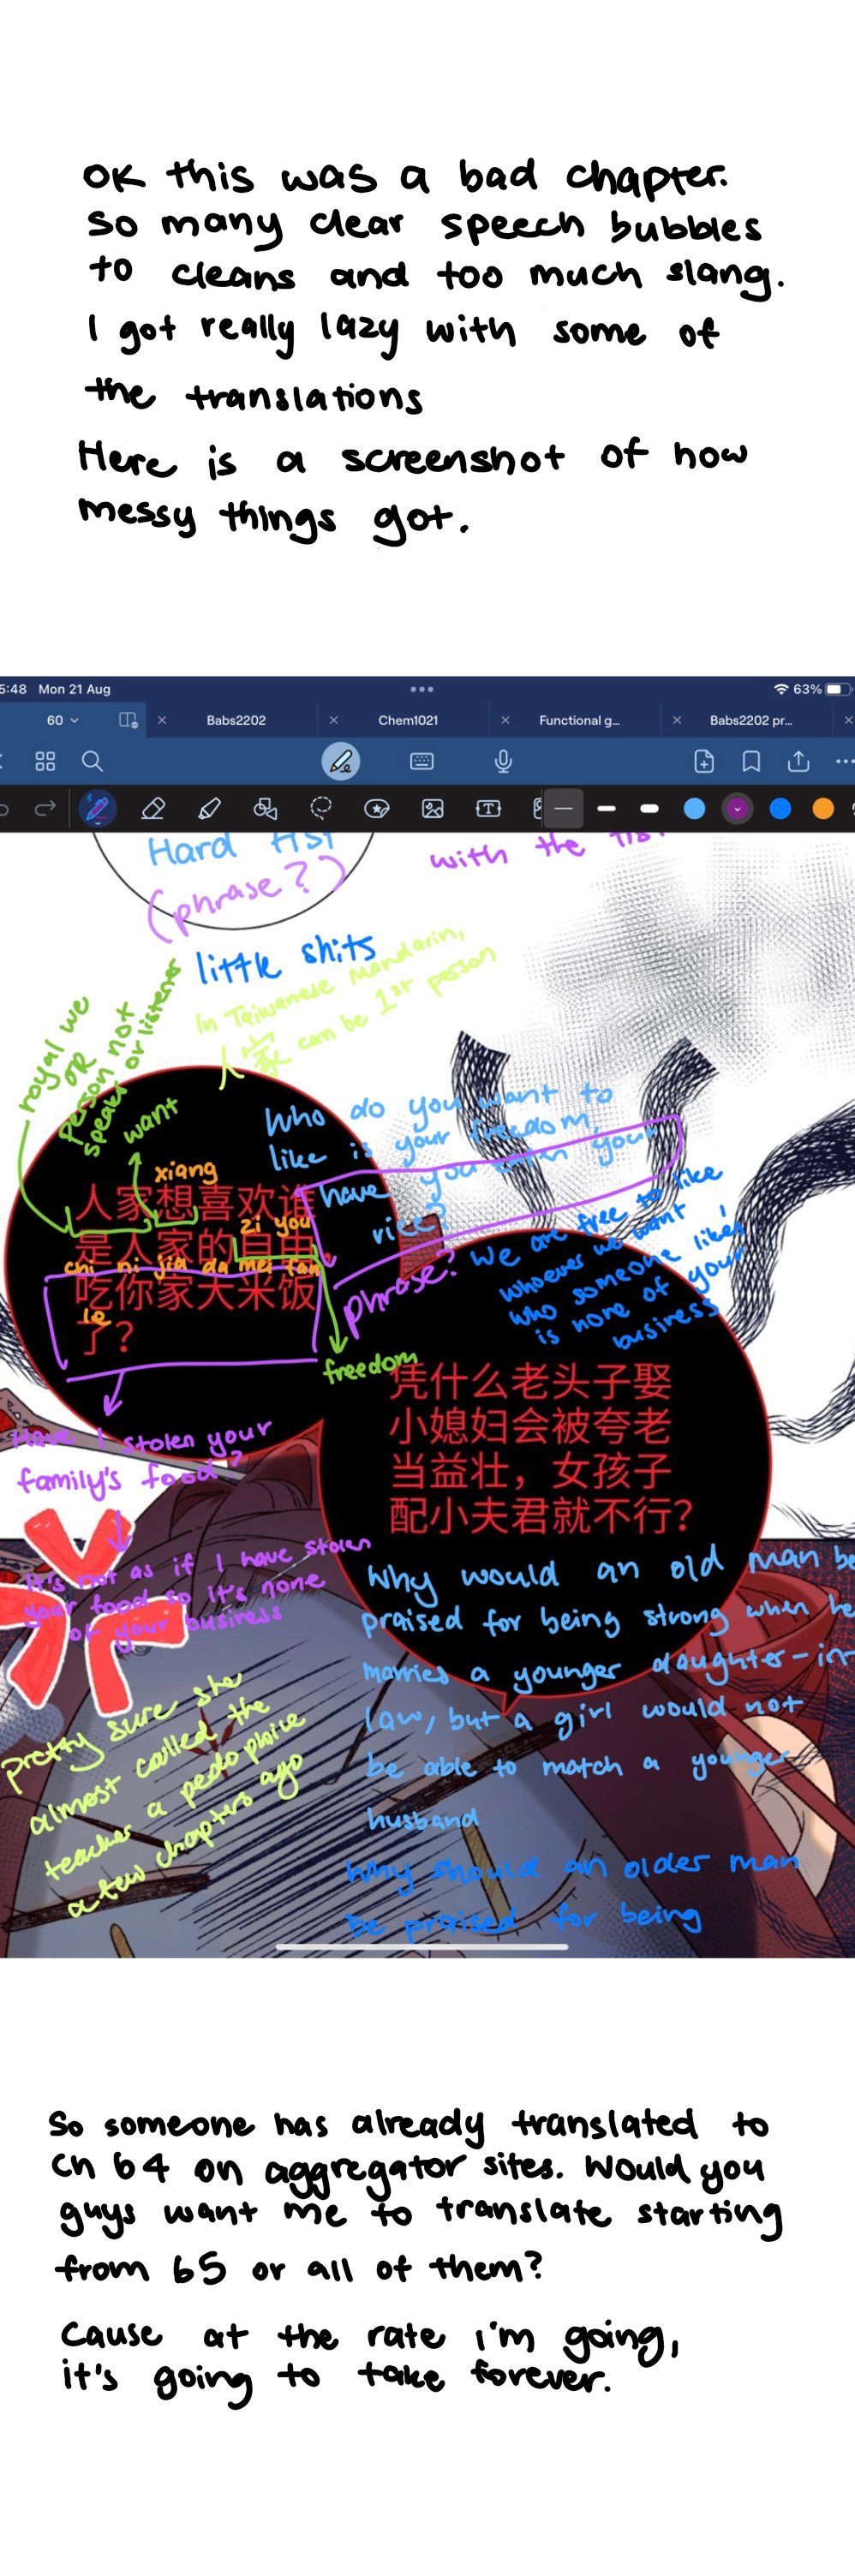 OK this was a bad chapter.
So many clear speech bubbles
to cleans and too much slang.
I got really lazy with some of
the translations
Here is a screenshot of how
messy things got.
5:48 Mon 21 Aug
63%
60
Babs2202
Chem1021
Functional g...
Babs2202 pr...
Hard fist
(phrase?)
with the
little shits
In Taiwanese Mandarin,
人家 can be 1st person
royal we
OR
person not
speaker or listener
want
xiang
zi you
chi ni jia da mei fan
le
人家想喜欢谁
是人家的自由,
吃你家大米饭
了?
Who do you want to
like is your freedom,
have you your
rice?
phrase?
We are free to like
whoever we want
who someone likes
is none of your
business
freedom
凭什么老头子娶
小媳妇会被夸老
当益壮，女孩子
配小夫君就不行？
Have I stolen your
family's food?
It's not as if I have stolen
your food so it's none
of your business
pretty sure she
almost called the
teacher a pedophile
a few chapters ago
Why would an old man be
praised for being strong when he
marries a younger daughter-in-
law, but a girl would not
be able to match a younger
husband
Why should an older man
be praised for being
So someone has already translated to
Ch 64 on aggregator sites. Would you
guys want me to translate starting
from 65 or all of them?
Cause at the rate i'm going,
it's going to take forever.